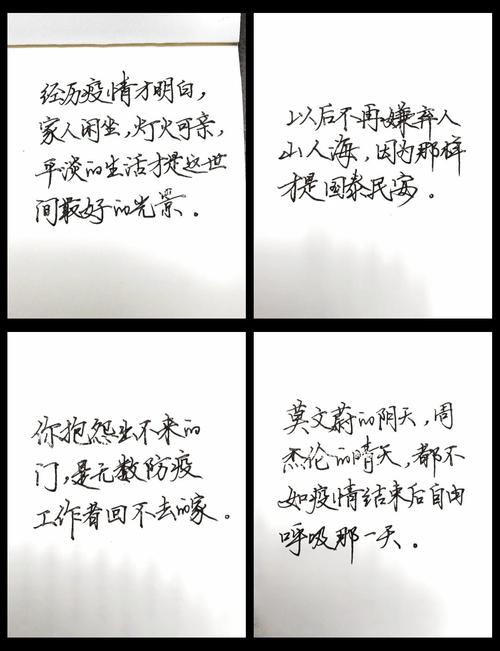 经历疫情才明白，
家人闲坐，灯火可亲，
平淡的生活才是这世
间最好的光景。
以后不再嫌弃人
山人海，因为那样
才是国泰民安。
你抱怨出不来的
门，是无数防疫
工作者回不去的家。
莫文蔚的阴天，周
杰伦的晴天，都不
如疫情结束后自由
呼吸那一天。